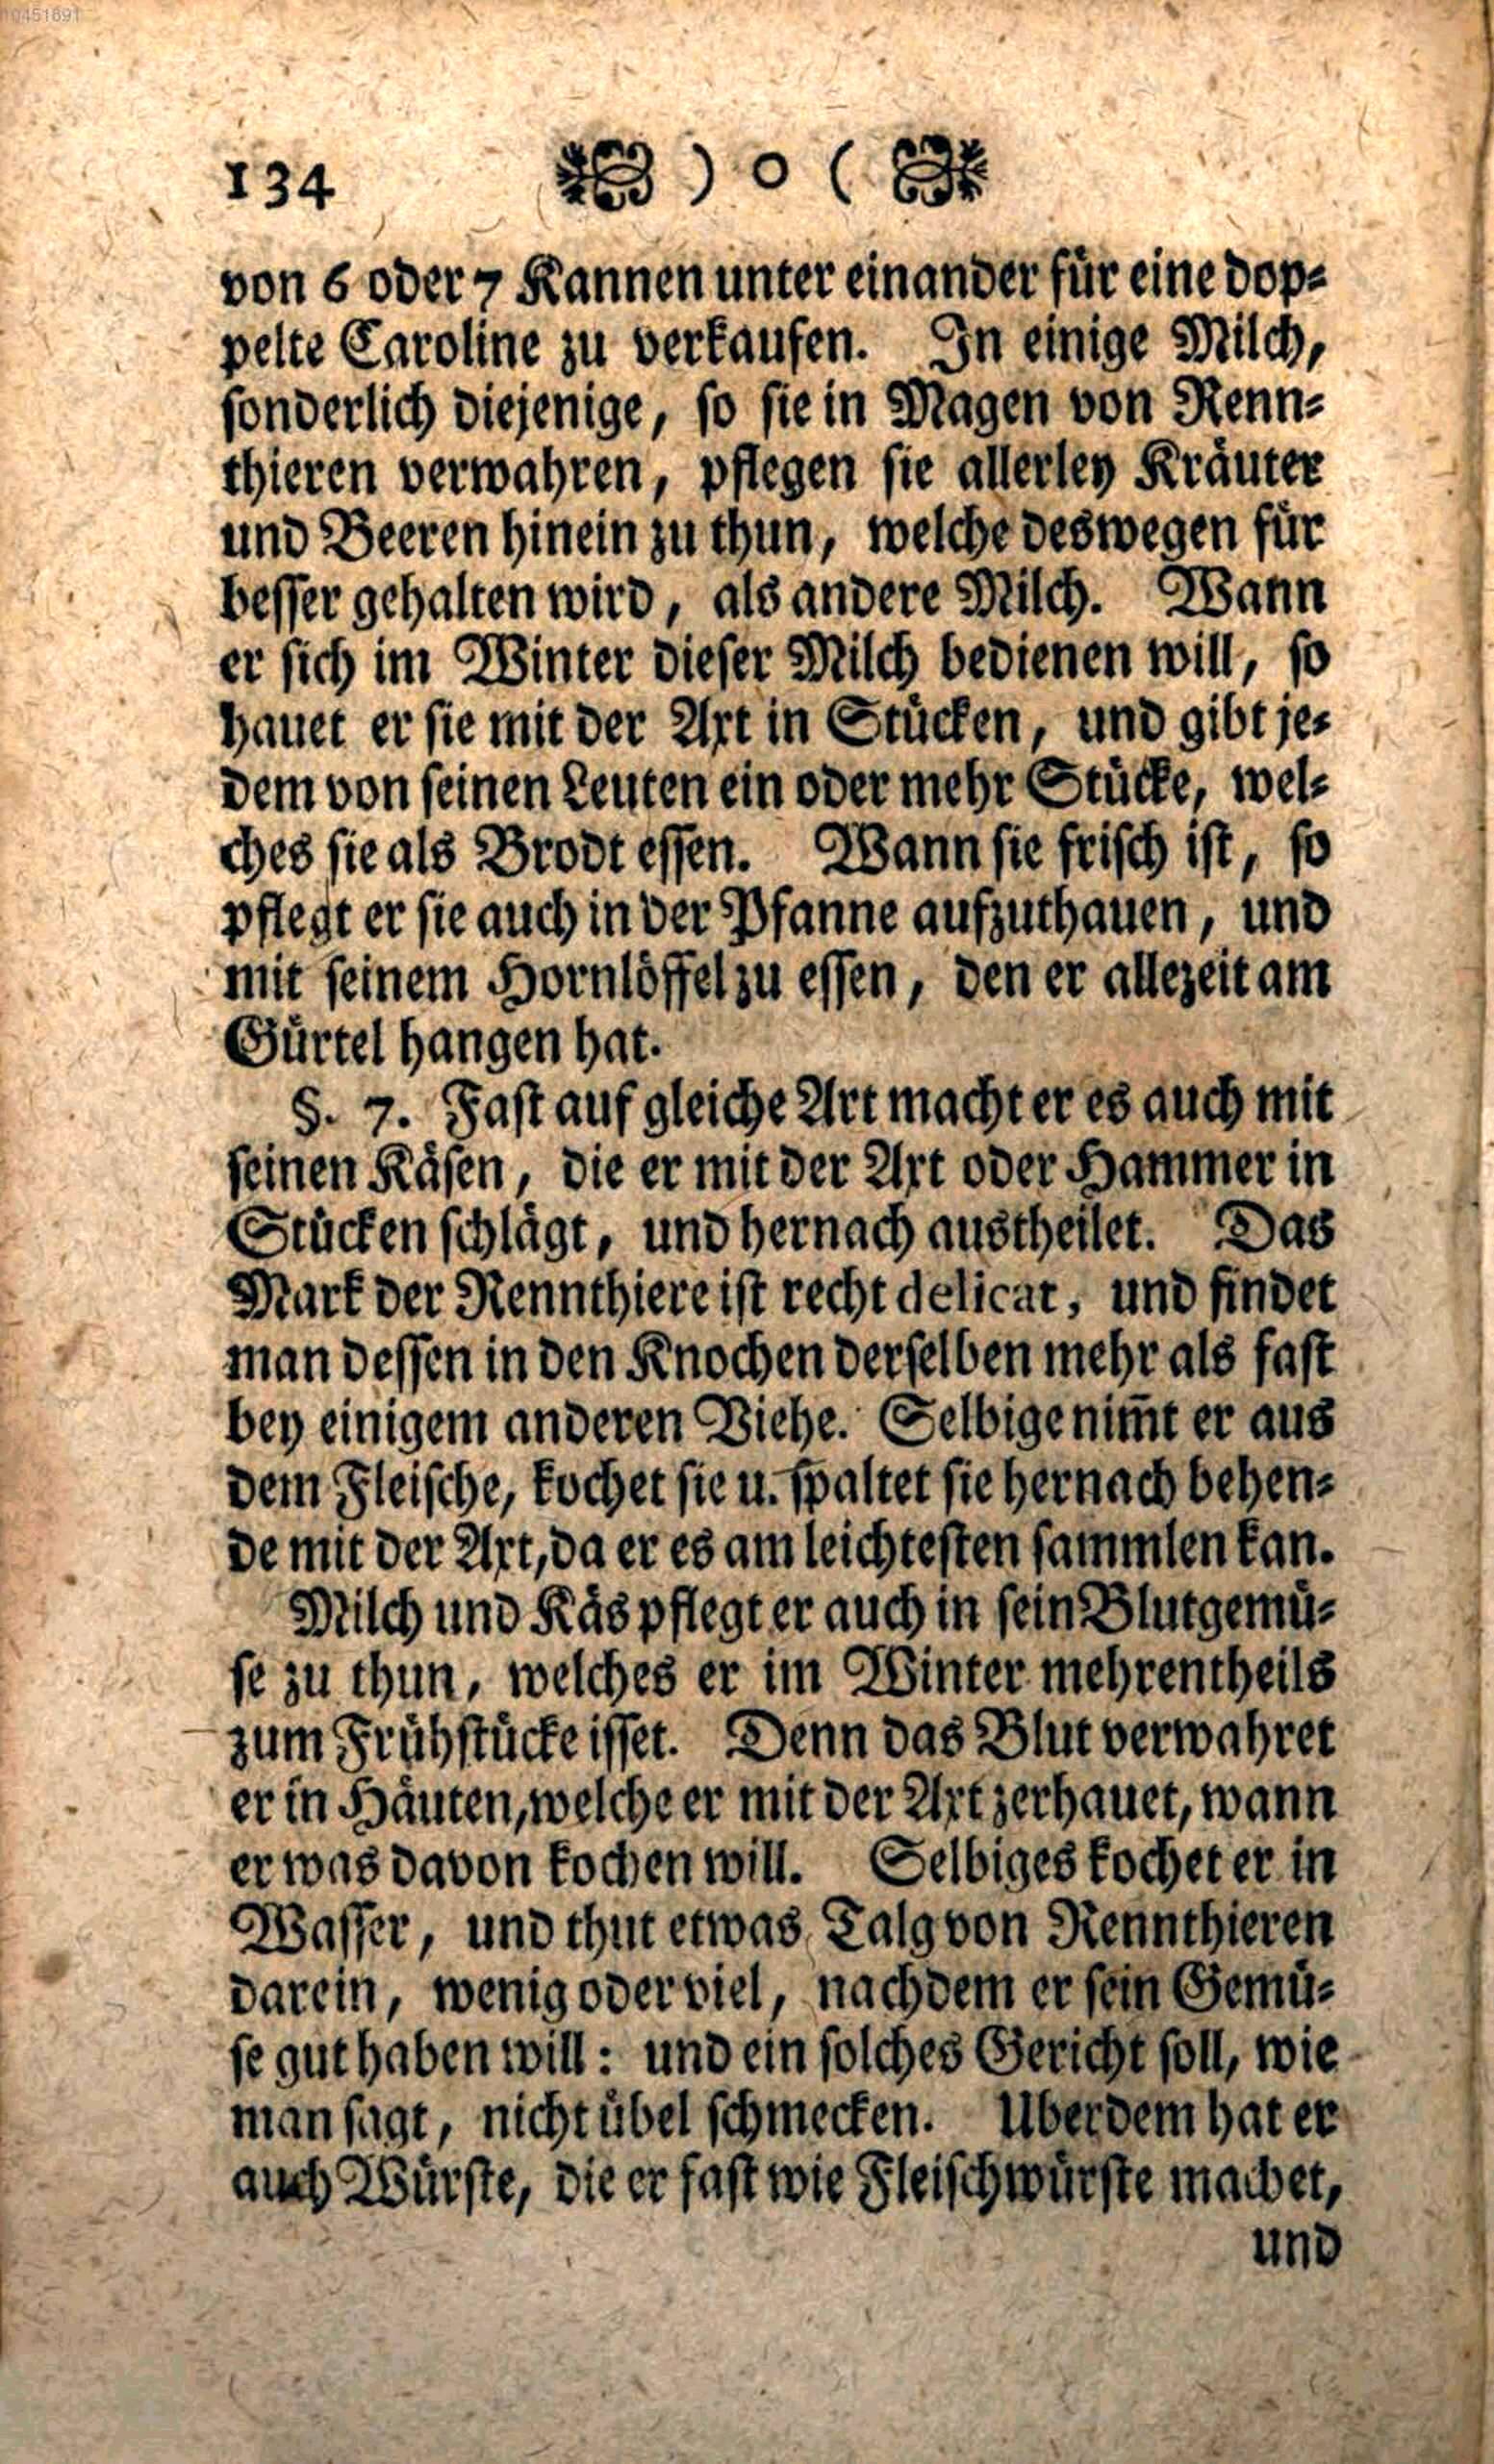 10451691
134 ) o (
von 6 oder 7 Kannen unter einander für eine dop-
pelte Caroline zu verkaufen. In einige Milch,
sonderlich diejenige, so sie in Magen von Renn-
thieren verwahren, pflegen sie allerley Kräuter
und Beeren hinein zu thun, welche deswegen für
besser gehalten wird, als andere Milch. Wann
er sich im Winter dieser Milch bedienen will, so
hauet er sie mit der Axt in Stücken, und gibt je-
dem von seinen Leuten ein oder mehr Stücke, wel-
ches sie als Brodt essen. Wann sie frisch ist, so
pflegt er sie auch in der Pfanne aufzuthauen, und
mit seinem Hornlöffel zu essen, den er allezeit am
Gürtel hangen hat.
§. 7. Fast auf gleiche Art macht er es auch mit
seinen Käsen, die er mit der Axt oder Hammer in
Stücken schlägt, und hernach austheilet. Das
Mark der Rennthiere ist recht delicat, und findet
man dessen in den Knochen derselben mehr als fast
bey einigem anderen Viehe. Selbige nim̃t er aus
dem Fleische, kochet sie u. spaltet sie hernach behen-
de mit der Axt, da er es am leichtesten sammlen kan.
Milch und Käs pflegt er auch in sein Blutgemü-
se zu thun, welches er im Winter mehrentheils
zum Frühstücke isset. Denn das Blut verwahret
er in Häuten, welche er mit der Axt zerhauet, wann
er was davon kochen will. Selbiges kochet er in
Wasser, und thut etwas Talg von Rennthieren
darein, wenig oder viel, nachdem er sein Gemü-
se gut haben will: und ein solches Gericht soll, wie
man sagt, nicht übel schmecken. Uberdem hat er
auch Würste, die er fast wie Fleischwürste machet,
und